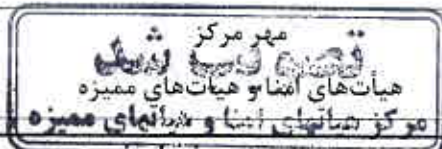 مهر مرکز
هیأت‌های امنا و هیأت‌های ممیزه
مرکز هیأتهای امنا و هیأتهای ممیزه